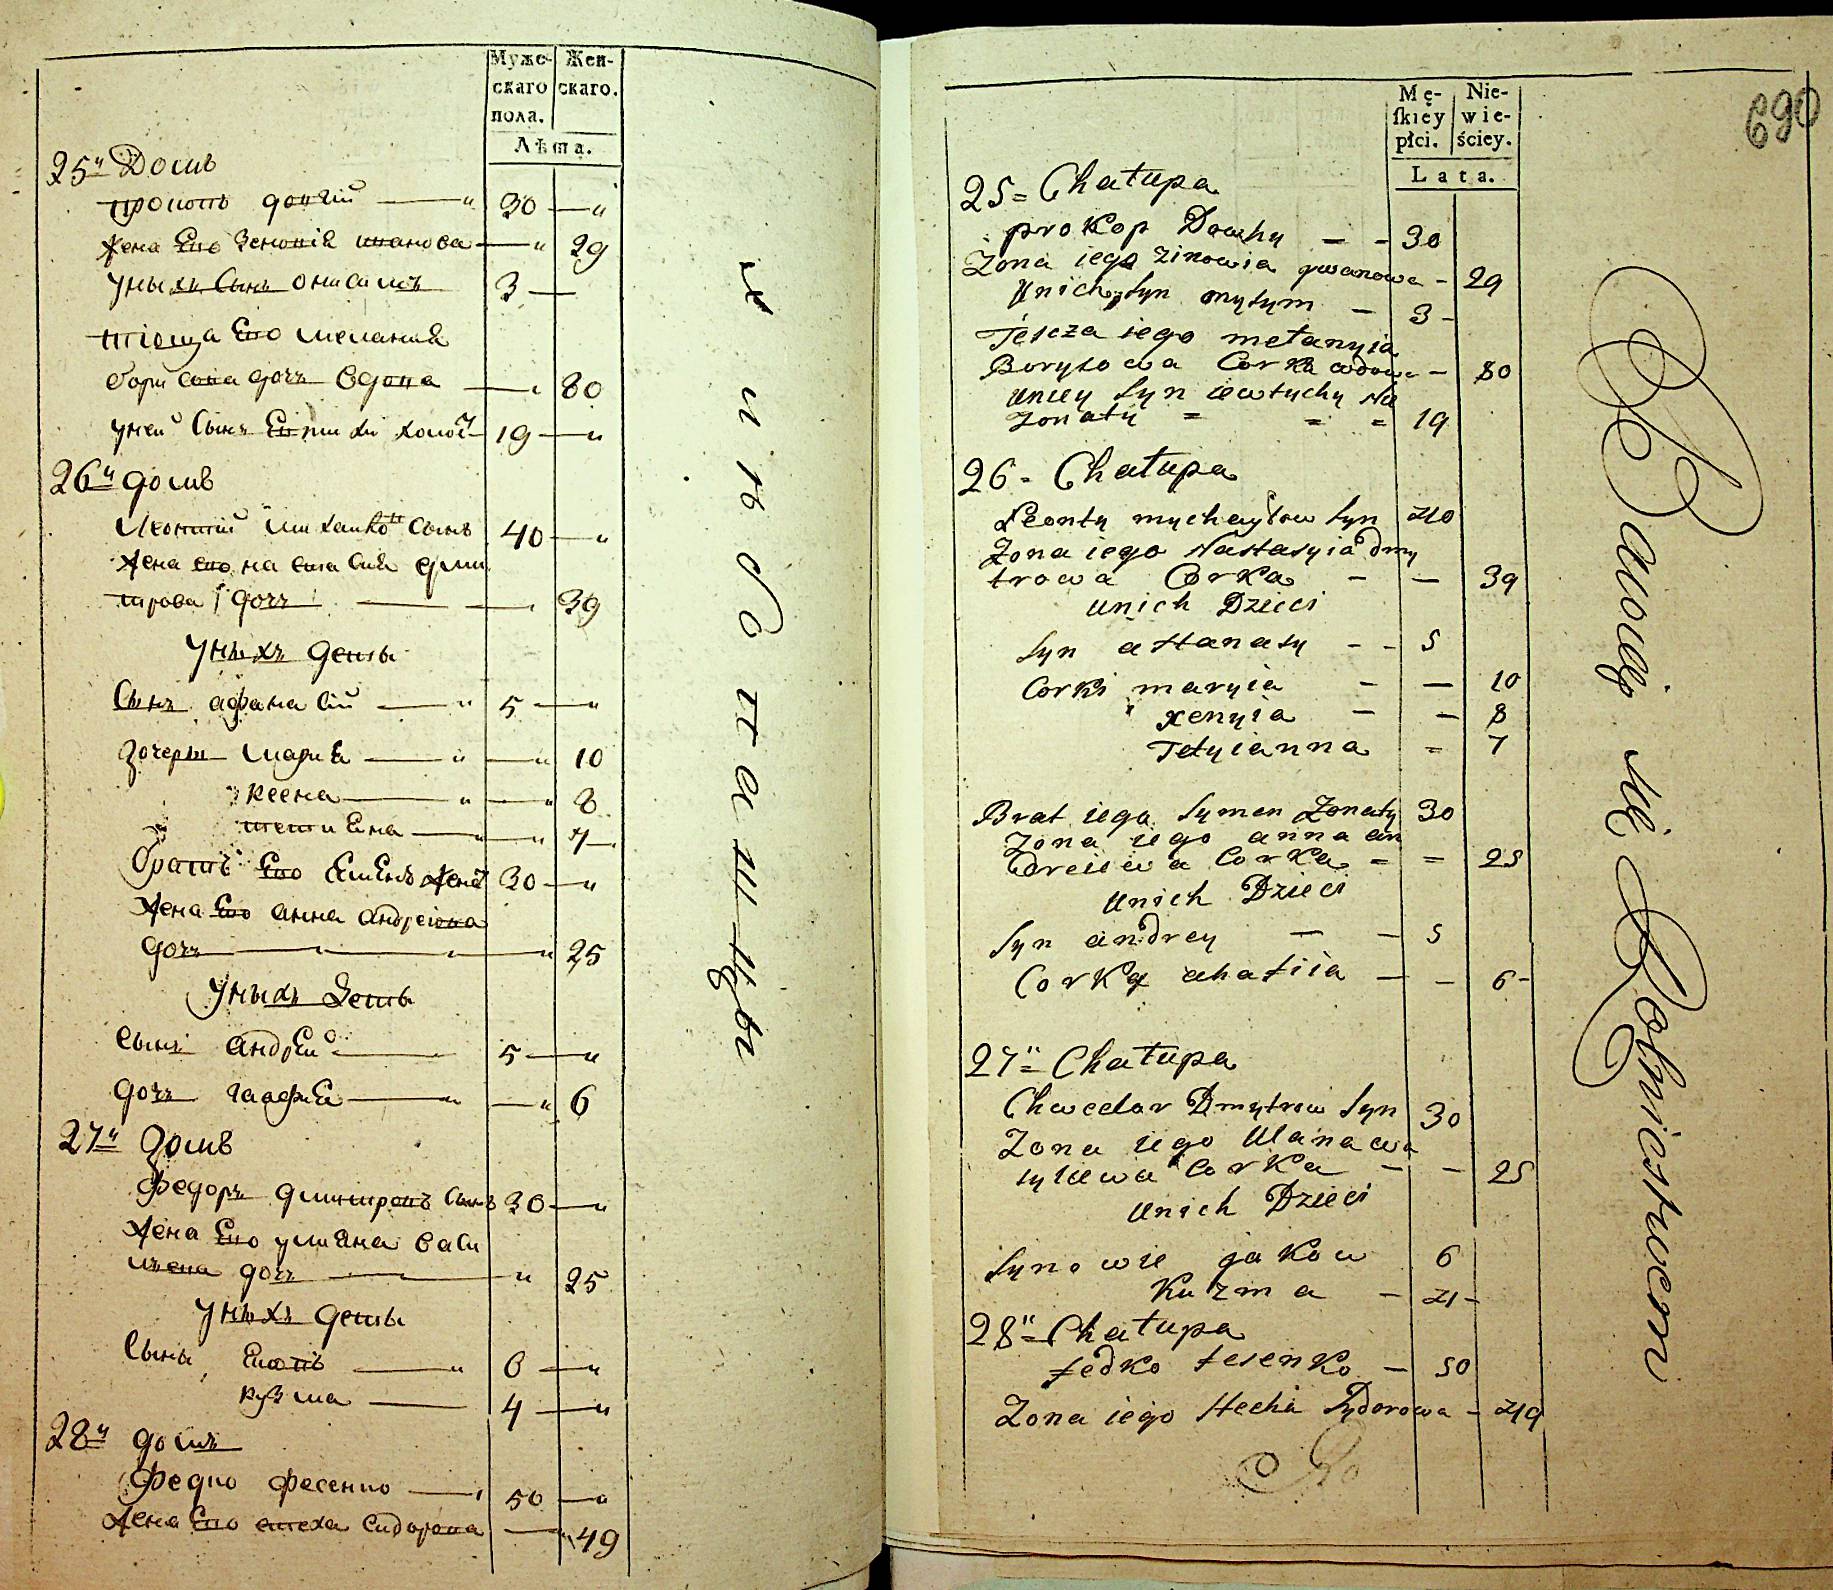 Муже-
скаго
пола.
Жен-
скаго.
Лѣта.
25й Домъ
Прокопъ довгій — " 30 — "
жена Его Зеновія иванова — " 29
Уныхъ Сынъ онисимъ 3 —
тіоща Его мелания
борисова дочь вдова — 80
унеи Сынъ Евтихи холост 19 — "
26й домъ
Леонтий михайловъ Сынъ 40 — "
жена его настасия дми
трова дочь — — 39
Уныхъ дети
Сынъ афанасий — " 5 — "
дочери Мария — " — " 10
ксена — " — " 8
тетиЕна — 7
братъ Его СемЕнъ женат 30 — "
жена Его анна андреіова
дочь — — " 25
Уныхъ дети
Сынъ андрей — 5 — "
дочь гаафия — " — " 6
27й домъ
Федоръ дмитровъ Сынъ 30 — "
жена Его улияна васи
льева дочь — " 25
Уныхъ дети
Сыны Ековъ — " 6 — "
кузма — 4 — "
28й домъ
Федко фесенко — 50 — "
жена Его стеха сидорова — 49
и работницы
Mę-
ſkiey
płci.
Nie-
wie-
ściey.
Lata.
690
25 = Chałupa
prokop Dowhy – – 30
Żona iego zinowia jwanowa – 29
Unich syn onysym – 3 –
Teścza iego mełanyia
Borysowa Corka wdowa – 80
uniey syn iewtychy Nie
żonaty = = = 19
26 - Chałupa
Leonty mychayłow syn 40
Żona iego Nastasyia dmy
trowa Corka – – 39
unich Dzieci
syn attanasy – – 5
Corki maryia – – 10
xenyia – – 8
Tetyianna = 7
Brat iego symen Żonaty 30
Żona iego anna an
dreiewa Corka = = 25
unich Dzieci
syn andrey – – 5
Corka ahafiia – – 6 –
27" = Chałupa
Chwedor Dmytrow syn 30
Żona iego Ulana wa
sylewa Corka – – 25
unich Dzieci
synowie jakow 6
Kuzma – 4 –
28" = Chałupa
fedko fesenko – 50
Żona iego Stecha Sydorowa – 49
Bawią się Rolnictwem